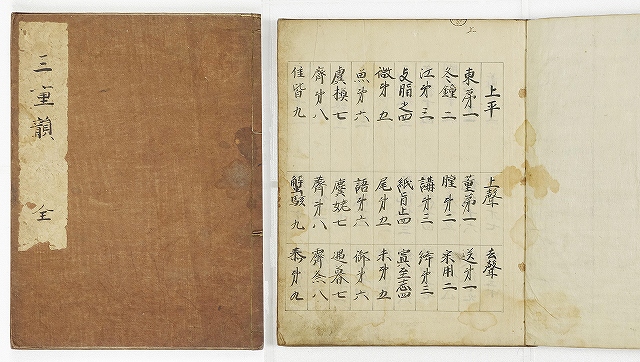 三重韻 全
上
上平 上聲 去聲
東第一 董第一 送第一
冬鍾二 腫第二 宋用二
江第三 講第三 絳第三
支脂之四 紙旨止四 寘至志四
微第五 尾第五 未第五
魚第六 語第六 御第六
虞模七 麌姥七 遇暮七
齊第八 薺第八 霽祭八
佳皆九 蟹駭九 泰第九